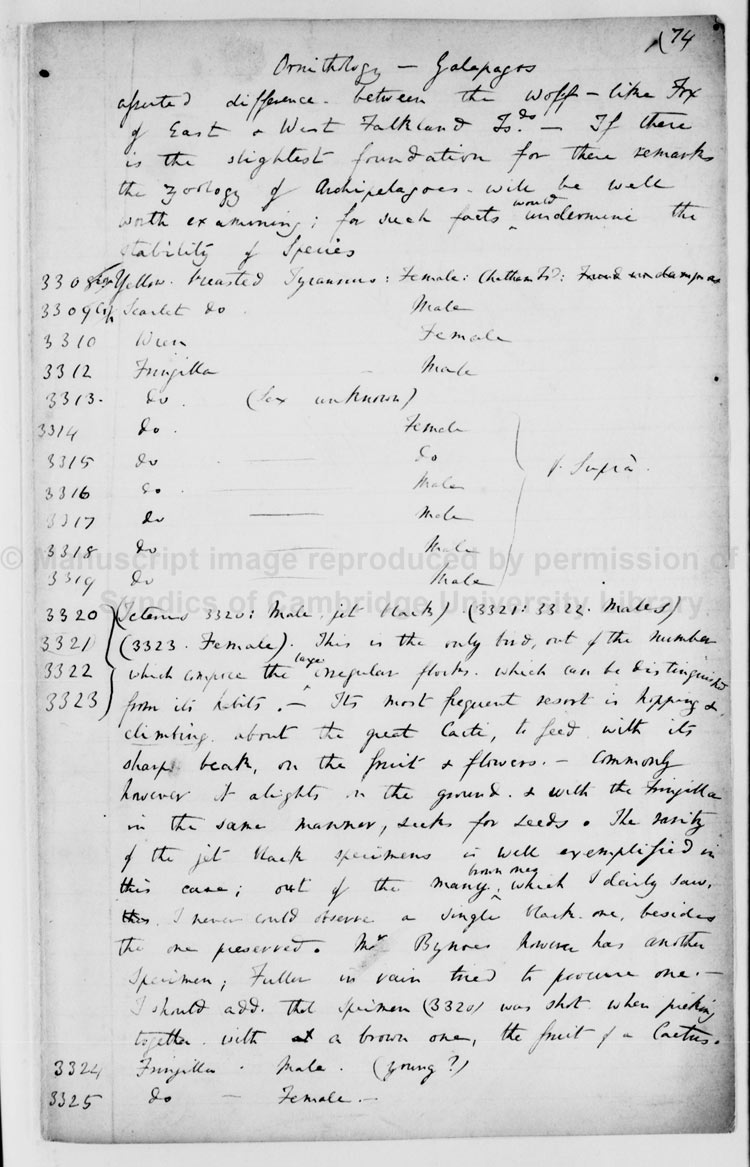 (74
Ornithology — Galapagos
asserted difference between the wolf-like Fox
of East & West Falkland Isds. — If there
is the slightest foundation for these remarks
the zoology of Archipelagoes will be well
worth examining; for such facts would undermine the
stability of Species
3308 Yellow breasted Tyrannus: Female: Chatham Isd:
3309 Scarlet do Male
3310 Wren Female
3312 Fringilla — Male
3313 do. (Sex unknown)
3314 do. Female
3315 do — do
3316 do. — Male
3317 do — Male
3318 do — Male
3319 do — Male
V. Supra.
3320 (Icterus 3320: Male. jet black) (3321: 3322. Males)
3321 (3323. Female). This is the only bird, out of the number
3322 which compose the large irregular flocks, which can be distinguished
3323 from its habits. — Its most frequent resort is hopping &
climbing about the great Cacti, to feed with its
sharp beak, on the fruit & flowers. — Commonly
however it alights on the ground. & with the Fringilla
in the same manner, seeks for seeds. The rarity
of the jet black specimens is well exemplified in
this case; out of the many brown ones which I daily saw,
I never could observe a single black one, besides
the one preserved. Mr Bynoe however has another
specimen; Fuller in vain tried to procure one. —
I should add that specimen (3320) was shot when picking
together with a brown one, the fruit of a Cactus.
3324 Fringilla. Male. (young?)
3325 do — Female. —
© Manuscript image reproduced by permission of
Syndics of Cambridge University Library